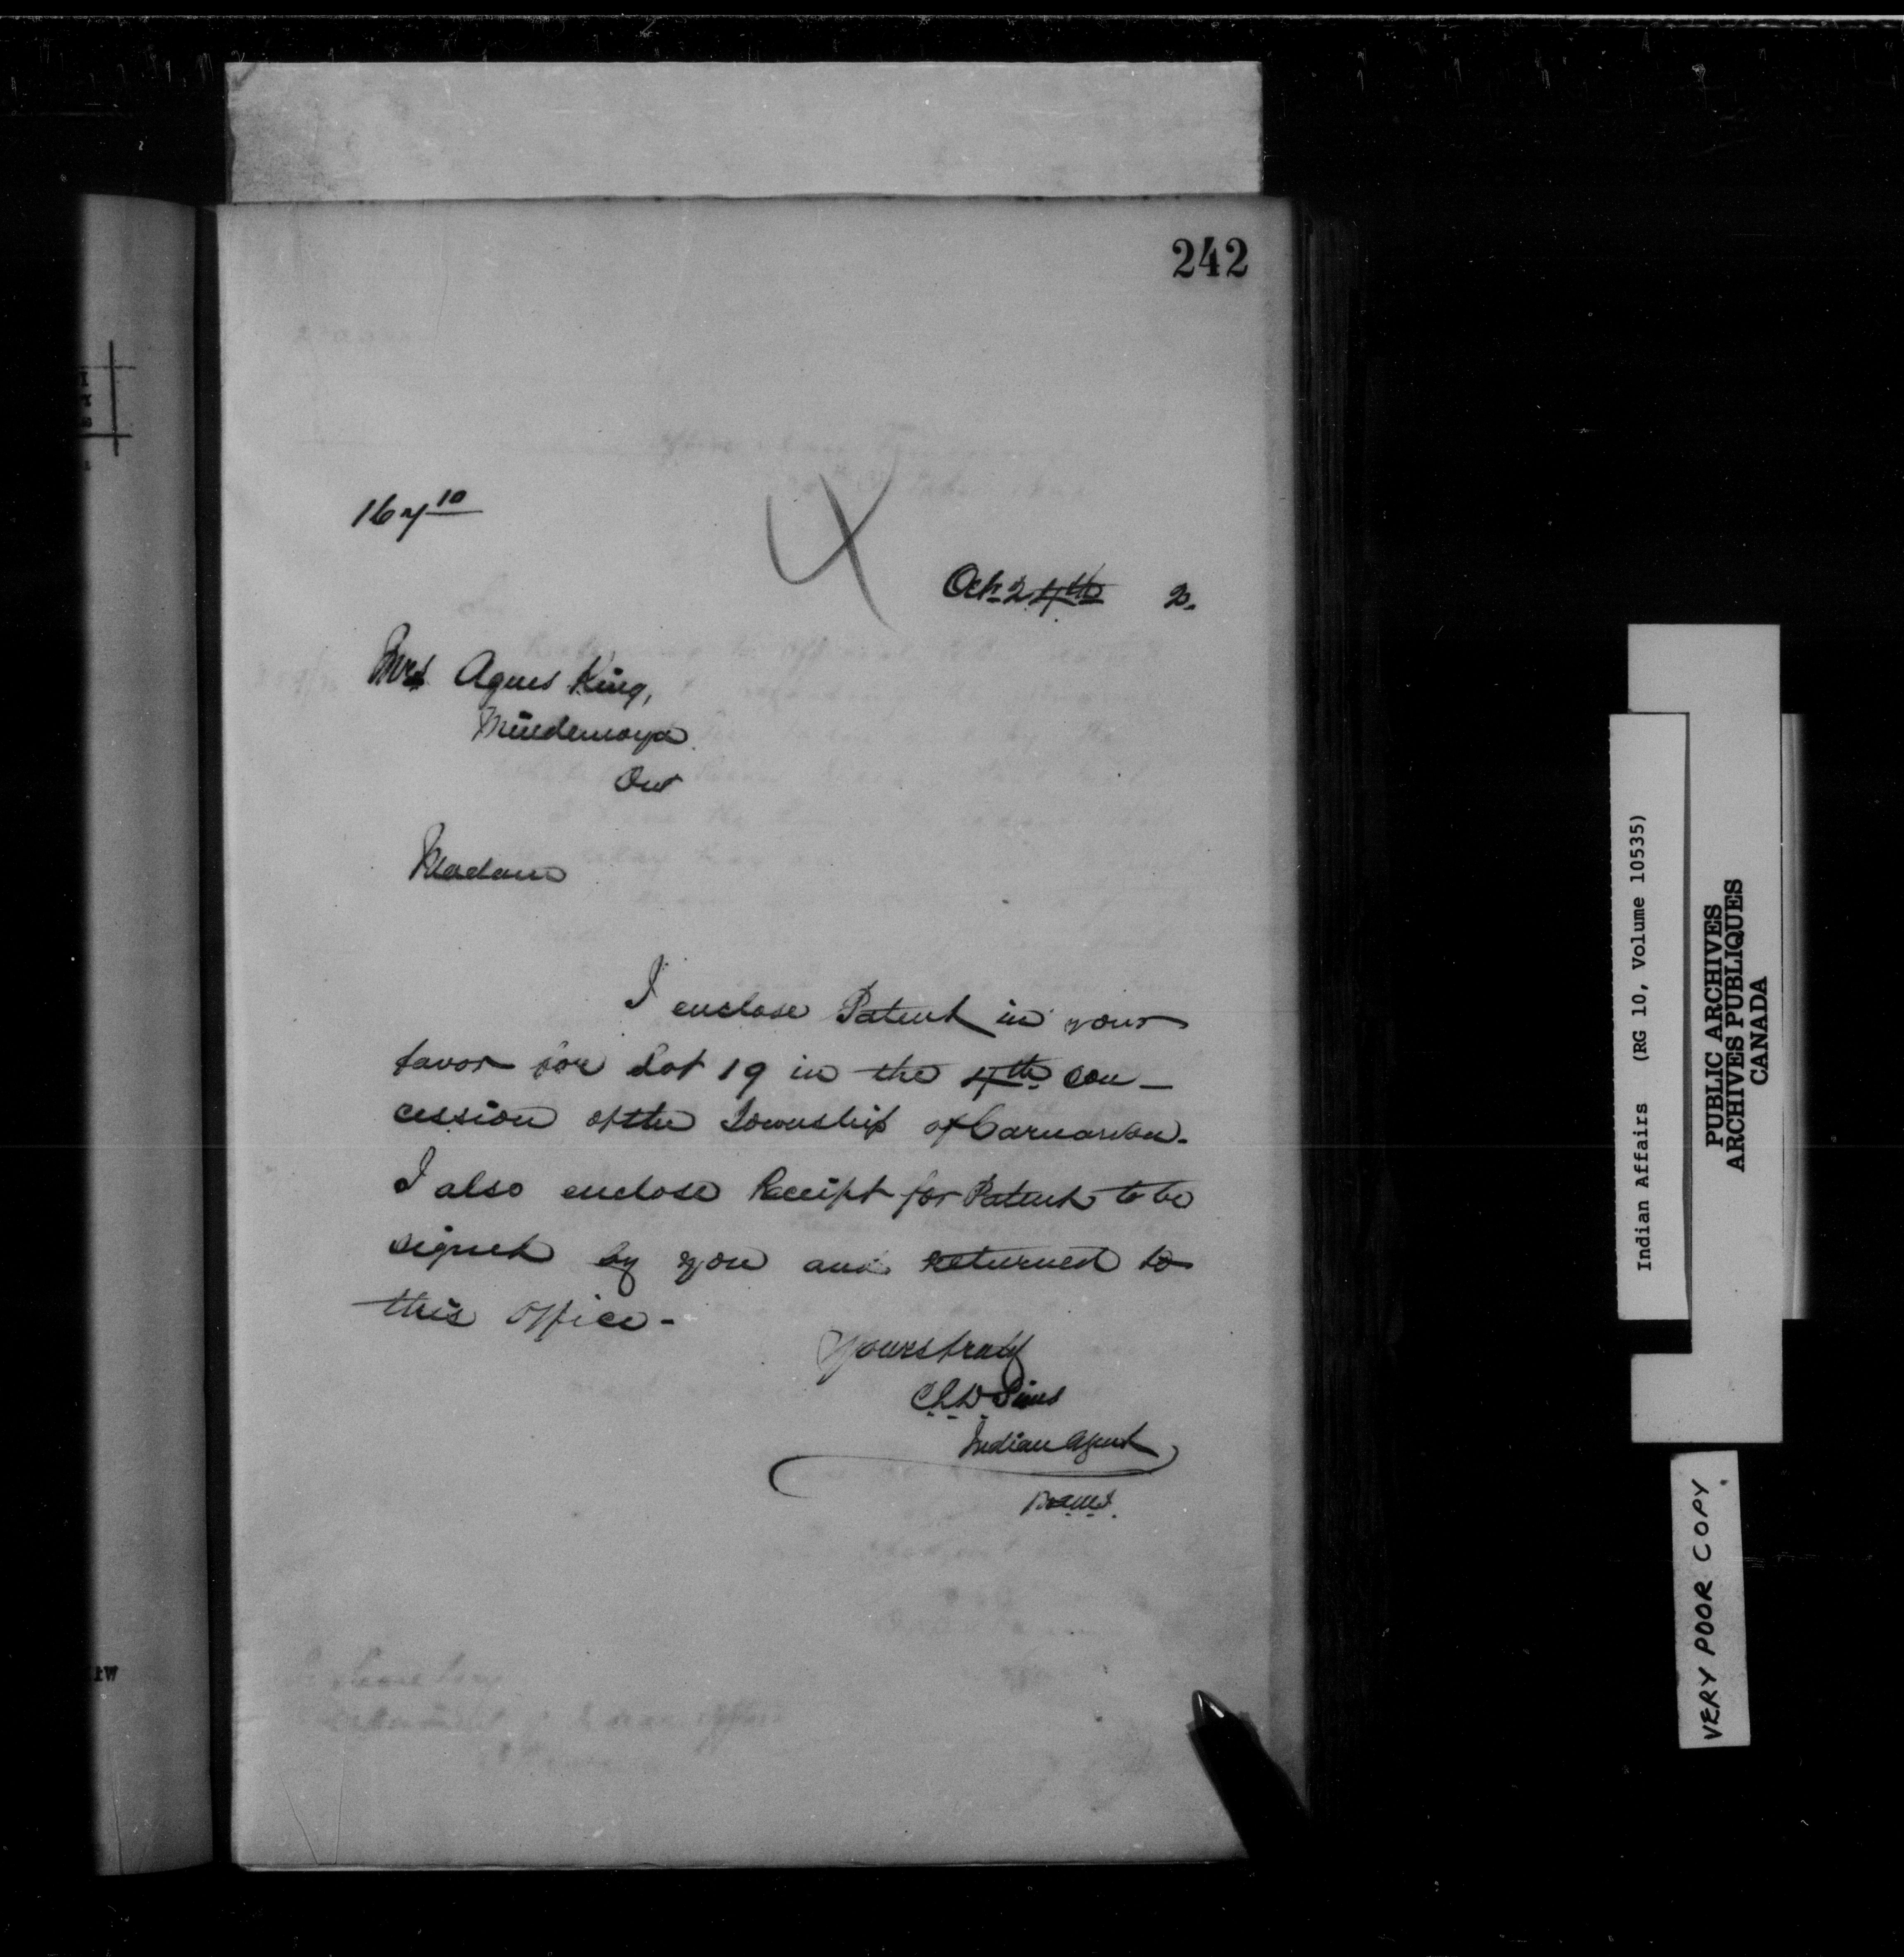 242
167 10
Oct. 24th 2.
Mrs Agnes King,
Mindemoya
Ont
Madam
I enclose Patent in your
favor for Lot 19 in the 4th con-
cession of the Township of Carnarvon.
I also enclose Receipt for Patent to be
signed by you and returned to
this office-
Yours truly
C.L.D. Sims
Indian Agent
Indian Affairs (RG 10, Volume 10535)
PUBLIC ARCHIVES
ARCHIVES PUBLIQUES
CANADA
VERY POOR COPY